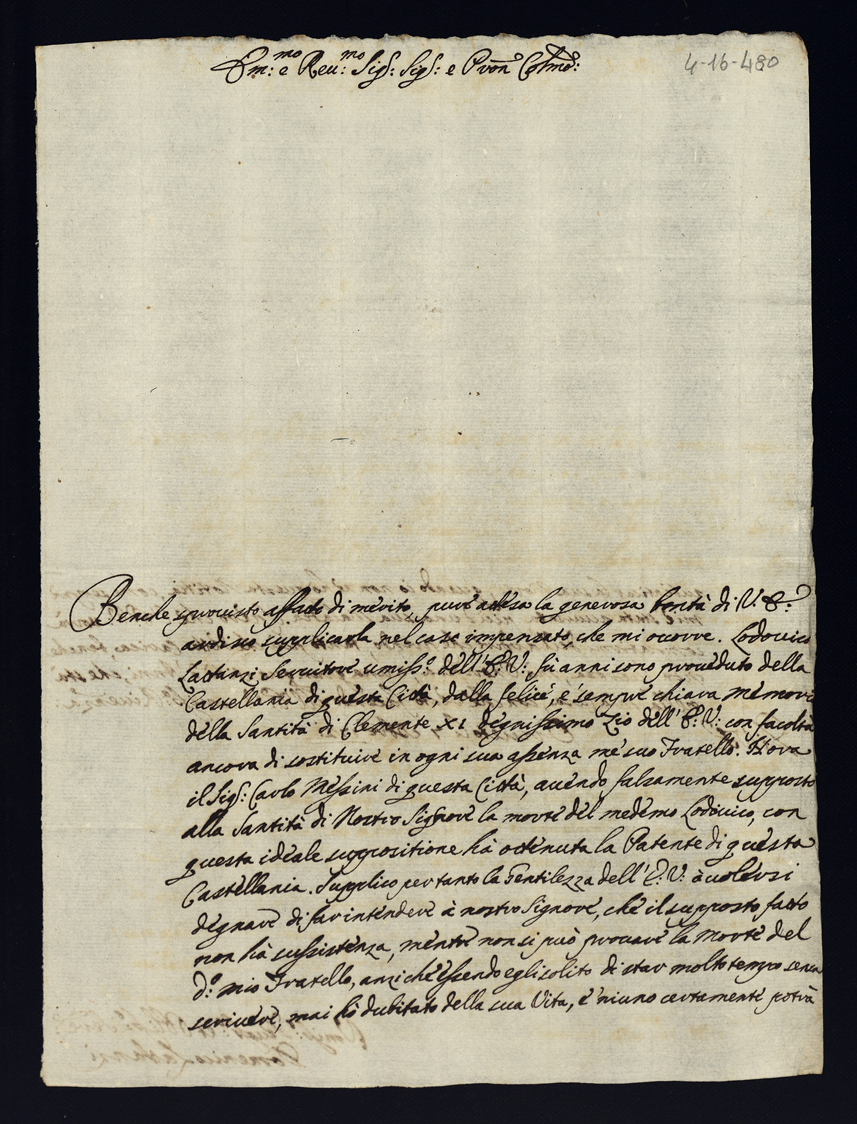 Em:mo e Reu:mo Sig.r Sig.r e Pron Colmo:
4-16-480
Benche sprouisto affatto di merito, pure attesa la generosa bontà di V. E:
ardisco supplicarla nel caso impensato, che mi occorre. Lodouico
Lattanzi Seruitore umiss.o dell'E: V: fù anni sono proueduto della
Castellania di questa Città, dalla felice, e sempre chiara memoria
della Santità di Clemente XI dignissimo Zio dell'E: V: con facoltà
ancora di sostituire in ogni sua assenza me suo Fratello. Hora
il Sig.r Carlo Messini di questa Città, auendo falsamente supposto
alla Santità di Nostro Signore la morte del medemo Lodouico, con
questa ideale suppositione hà ottenuta la Patente di questa
Castellania. Supplico pertanto la Gentilezza dell'E: V. à uolersi
degnare di far intendere à nostro Signore, che il supposto fatto
non hà sussistenza, mentre non si può prouare la Morte del
d.o mio Fratello, anzi ch'essendo egli solito di star molto tempo senza
scriuere, mai hò dubitato della sua Vita, e niuno certamente potrà